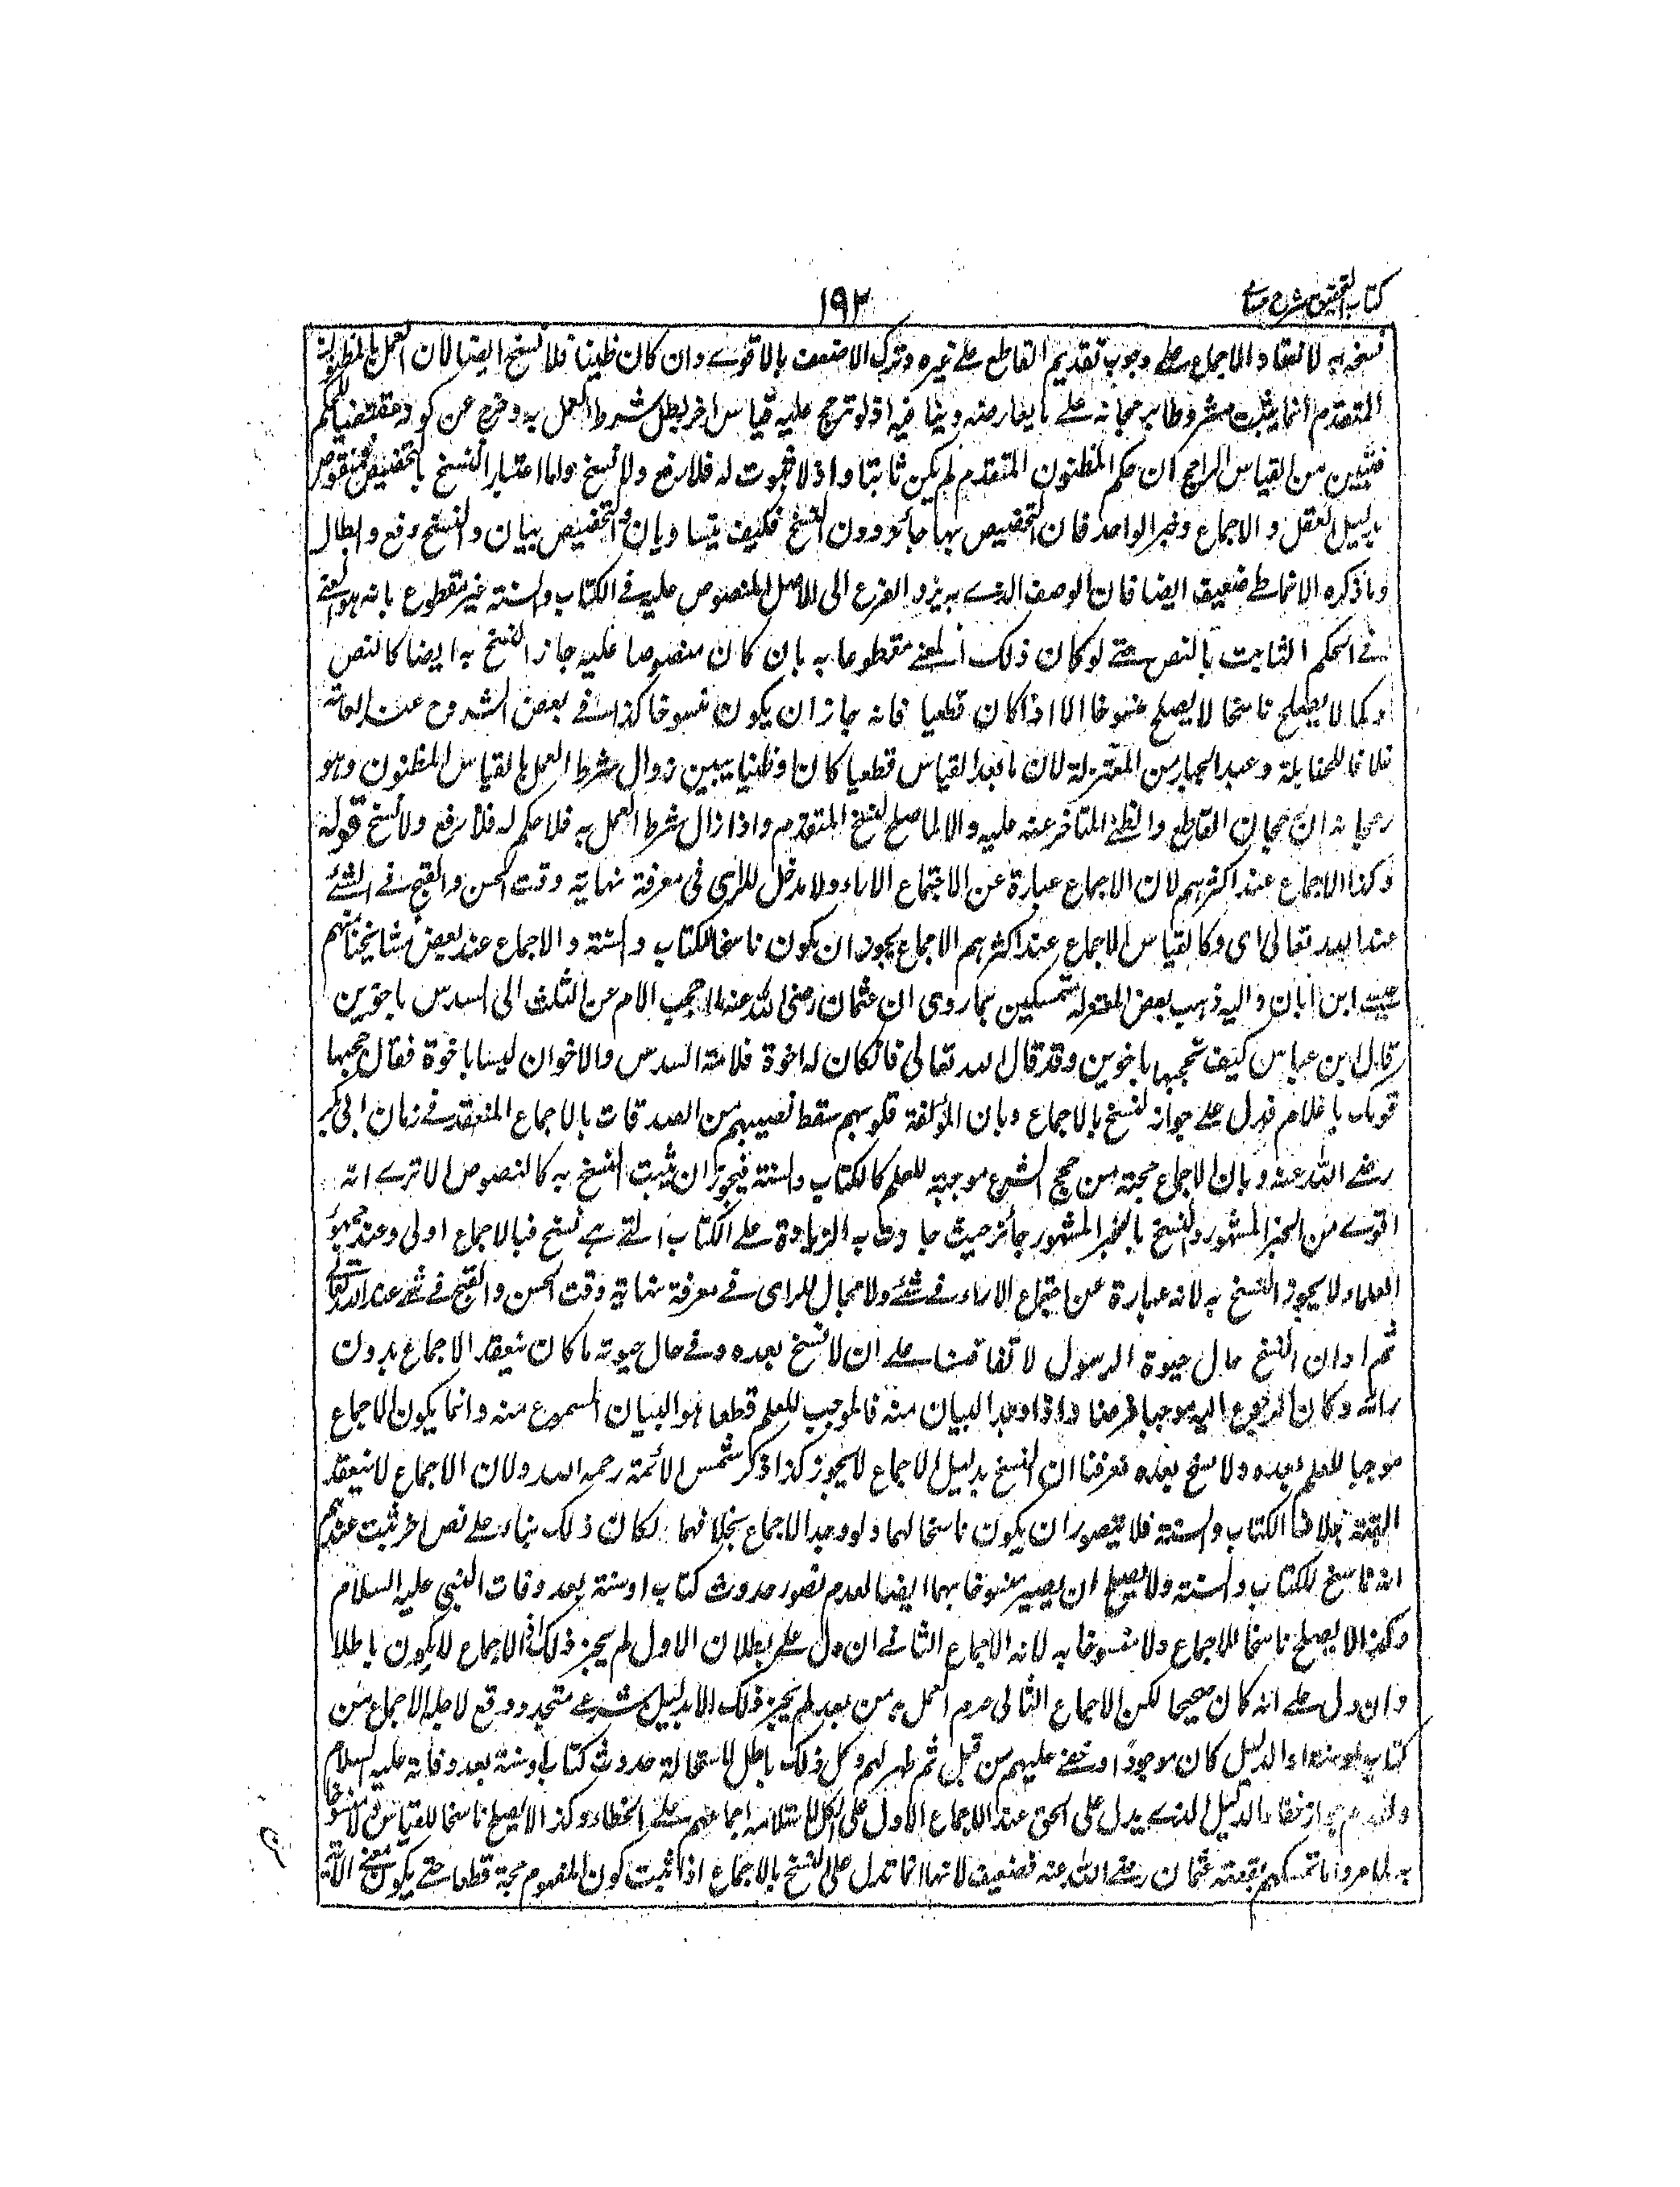 كتاب التحقيق شرح حسامي
١٩٢
نسخه به لانعقاد الاجماع على وجوب تقديم القاطع على غيره وترك الاضعف بالاقوى وان كان ظنيا فلا نسخ ايضا لان العمل بالمظنون
المتقدم انما يثبت مشروطا برجحانه على ما يعارضه وينافيه اذ لو ترجح عليه قياس اخر بطل شرط العمل به وخرج عن كونه مقتضيا للحكم
فتبين من القياس الراجح ان حكم المظنون المتقدم لم يكن ثابتا واذ لا ثبوت له فلا رفع ولا نسخ واما اعتبار النسخ بالتخصيص فمنقوض
بدليل العقل والاجماع وخبر الواحد فان التخصيص بها جائز دون النسخ فكيف يتساويان والتخصيص بيان والنسخ رفع وابطال
وما ذكره الانماطي ضعيف ايضا فان الوصف الذي به يرد الفرع الى الاصل المنصوص عليه في الكتاب والسنة غير مقطوع بانه هو المعنى
في الحكم الثابت بالنص حتى لو كان ذلك المعنى مقطوعا به بان كان منصوصا عليه جاز النسخ به ايضا كالنص
وكما لا يصلح ناسخا لا يصلح منسوخا الا اذا كان قطعيا فانه جاز ان يكون منسوخا كذا في بعض الشروح عند العامة
خلافا للحنابلة وعبد الجبار من المعتزلة لان ما بعد القياس قطعيا كان او ظنيا يبين زوال شرط العمل بالقياس المظنون وهو
رجحانه اذ رجحان القاطع والظني المتاخر عنه عليه والا لما صلح لنسخ المتقدم واذا زال شرط العمل به فلا حكم له فلا رفع ولا نسخ قوله
وكذا الاجماع عند اكثرهم لان الاجماع عبارة عن الاجتماع الاراء ولا مدخل للراى فى معرفة نهاية وقت الحسن والقبح في الشئ
عند الله تعالى اى وكالقياس الاجماع عند اكثرهم الاجماع يجوز ان يكون ناسخا للكتاب والسنة والاجماع عند بعض مشايخنا منهم
عيسى ابن ابان واليه ذهب بعض المعتزلة متمسكين بما روى ان عثمان رضى الله عنه لما حجب الام عن الثلث الى السدس باخوين
قال ابن عباس كيف تحجبها باخوين وقد قال الله تعالى فان كان له اخوة فلامه السدس والاخوان ليسا باخوة فقال حجبها
قومك يا غلام فدل على جواز النسخ بالاجماع وبان المؤلفة قلوبهم سقط نصيبهم من الصدقات بالاجماع المنعقد في زمان ابى بكر
رضي الله عنه وبان الاجماع حجة من حجج الشرع موجبة للعلم كالكتاب والسنة فيجوز ان يثبت النسخ به كالنصوص الا ترى انه
اقوى من الخبر المشهور والنسخ بالخبر المشهور جائز حيث جازت به الزيادة على الكتاب التي هي نسخ فبالاجماع اولى وعند جمهور
العلماء لا يجوز النسخ به لانه عبارة عن اجتماع الاراء في شئ ولا مجال للراى في معرفة نهاية وقت الحسن والقبح في شئ عند الله تعالى
ثم اوان النسخ حال حيوة الرسول لاتفاقنا على ان لا نسخ بعده وفي حال حيوته ما كان ينعقد الاجماع بدون
رايه وكان الرجوع اليه موجبا فرضا واذا وجد البيان منه فالموجب للعلم قطعا هو البيان المسموع منه وانما يكون الاجماع
موجبا للعلم بعده ولا نسخ بعده فعرفنا ان النسخ بدليل الاجماع لا يجوز كذا ذكر شمس الائمة رحمه الله ولان الاجماع لا ينعقد
البتة بخلاف الكتاب والسنة فلا يتصور ان يكون ناسخا لهما ولو وجد الاجماع بخلافهما لكان ذلك بناء على نص اخر ثبت عندهم
انه ناسخ للكتاب والسنة ولا يصلح ان يصير منسوخا بهما ايضا لعدم تصور حدوث كتاب او سنة بعد وفات النبي عليه السلام
وكذا لا يصلح ناسخا للاجماع ولا منسوخا به لانه الاجماع الثاني ان دل على بطلان الاول لم يجز ذلك اذ الاجماع لا يكون باطلا
وان دل على انه كان صحيحا لكن الاجماع الثانى حرم العمل به من بعد لم يجز ذلك الا بدليل شرعي متجدد وقع لاجله الاجماع من
كتاب او سنة او الدليل كان موجودا وخفى عليهم من قبل ثم ظهر لهم وكل ذلك باطل لاستحالة حدوث كتاب او سنة بعد وفاته عليه السلام
ولعدم جواز خفاء الدليل الذي يدل على الحق عند الاجماع الاول على الكل لاستلزامه اجماعهم على الخطاء وكذا لا يصلح ناسخا للقياس ولا منسوخا
به لما مر واما تمسكهم بقصة عثمان رضي الله عنه فضعيف لانها انما تدل على النسخ بالاجماع اذا ثبت كون المفهوم حجة قطعا حتى يكون معنى الآية